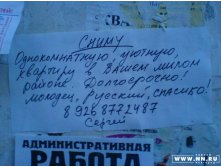 СНИМУ
Однокомнатную, уютную,
квартиру в Вашем милом
районе. Долгосрочно!
молодец, Русский, спасибо!
8 926 8772487
Сергей
АДМИНИСТРАТИВНАЯ
РАБОТА
WWW.NN.RU